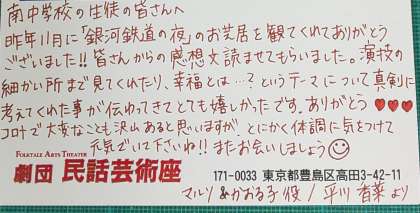 南中学校の生徒の皆さんへ
昨年11月に「銀河鉄道の夜」のお芝居を観てくれてありがとう
ございました!! 皆さんからの感想文読ませてもらいました。演技の
細かい所まで見てくれたり、幸福とは…?というテーマについて真剣に
考えてくれた事が伝わってきてとても嬉しかったです。ありがとう♥♥♥
コロナで大変なことも沢山あると思いますが、とにかく体調に気をつけて
元気でいて下さいね!! またお会いしましょう☺
FOLKTALE ARTS THEATER
劇団 民話芸術座
171-0033 東京都豊島区高田3-42-11
マルソ&かおる子役/平川香菜より